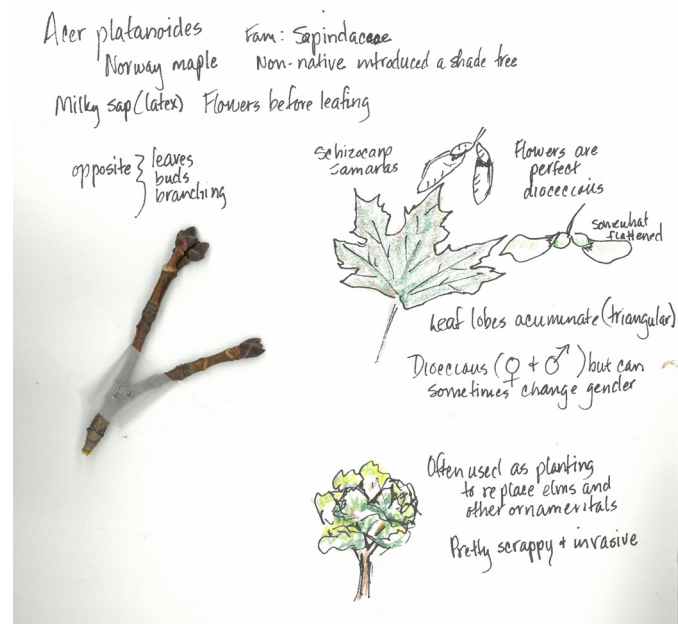 Acer platanoides Fam: Sapindaceae
Norway maple Non-native introduced a shade tree
Milky sap (latex) Flowers before leafing
opposite } leaves
buds
branching
Schizocarp
Samaras
Flowers are
perfect
diocecious
somewhat
flattened
Leaf lobes acuminate (triangular)
Dioecious (♀ + ♂) but can
sometimes change gender
Often used as planting
to replace elms and
other ornamentals
Pretty scrappy + invasive